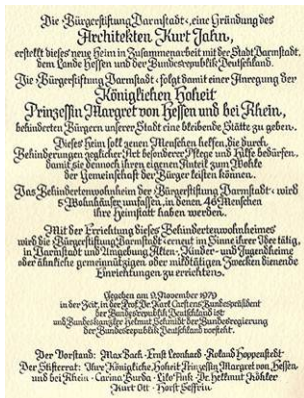 Die Bürgerstiftung Darmstadt, eine Gründung des
Architekten Kurt Jahn,
erstellt dieses neue Heim in Zusammenarbeit mit der Stadt Darmstadt,
dem Lande Hessen und der Bundesrepublik Deutschland.
Die ›Bürgerstiftung Darmstadt‹ folgt damit einer Anregung der
Königlichen Hoheit
Prinzessin Margret von Hessen und bei Rhein,
behinderten Bürgern unserer Stadt eine bleibende Stätte zu geben.
Dieses Heim soll jenen Menschen helfen, die durch
Behinderungen jeglicher Art besonderer Pflege und Hilfe bedürfen,
damit sie dennoch ihren eigenen Anteil zum Wohle
der Gemeinschaft der Bürger leisten können.
Das Behindertenwohnheim der ›Bürgerstiftung Darmstadt‹ wird
5 Wohnhäuser umfassen, in denen 46 Menschen
ihre Heimstatt haben werden.
Mit der Errichtung dieses Behindertenwohnheimes
wird die ›Bürgerstiftung Darmstadt‹ erneut im Sinne ihrer Idee tätig,
in Darmstadt und Umgebung Alten-, Kinder- und Jugendheime
oder ähnliche gemeinnützigen oder mildtätigen Zwecken dienende
Einrichtungen zu errichten.
Gegeben am 9. November 1979
in der Zeit, in der Prof. Dr. Karl Carstens Bundespräsident
der Bundesrepublik Deutschland ist
und Bundeskanzler Helmut Schmidt der Bundesregierung
der Bundesrepublik Deutschland vorsteht.
Der Vorstand: Max Bach · Ernst Leonhard · Roland Hoppenstedt
Der Stifterrat: Ihre Königliche Hoheit Prinzessin Margret von Hessen
und bei Rhein · Carina Burda · Lilo Fink · Dr. Hellmut Köhler
Kurt Ott · Horst Seffrin